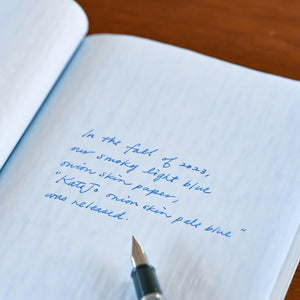 In the fall of 2023,
our smoky light blue
onion skin paper,
"KataJo onion skin pale blue"
was released.